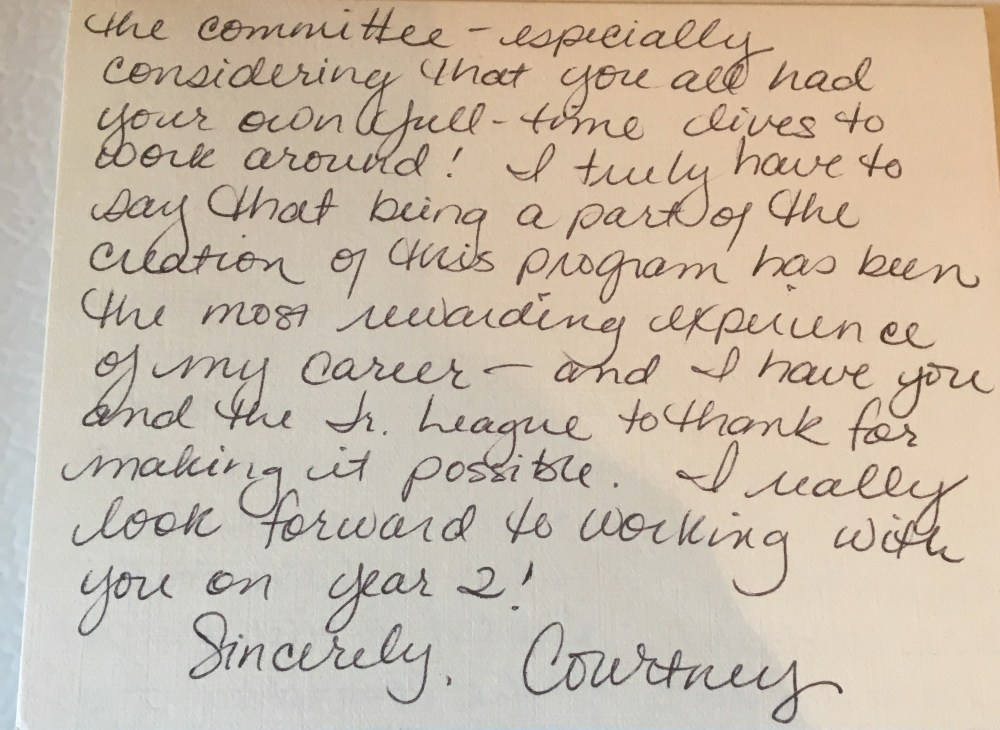 the committee - especially
considering that you all had
your own full-time lives to
work around! I truly have to
say that being a part of the
creation of this program has been
the most rewarding experience
of my career - and I have you
and the Jr. League to thank for
making it possible. I really
look forward to working with
you on year 2!
Sincerely, Courtney